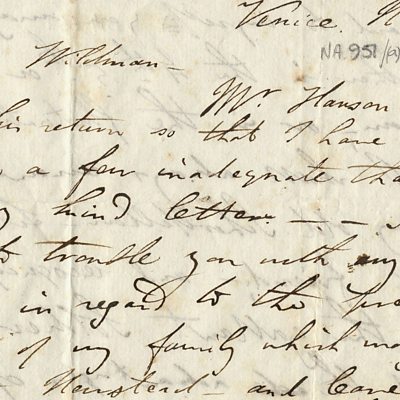 Venice. N
NA 951/(a)
Wildman –
Mr Hanson
his return so that I have
a few inadequate tha
kind letter – –
to trouble you with my
in regard to the
of my family which
Newstead – and leave